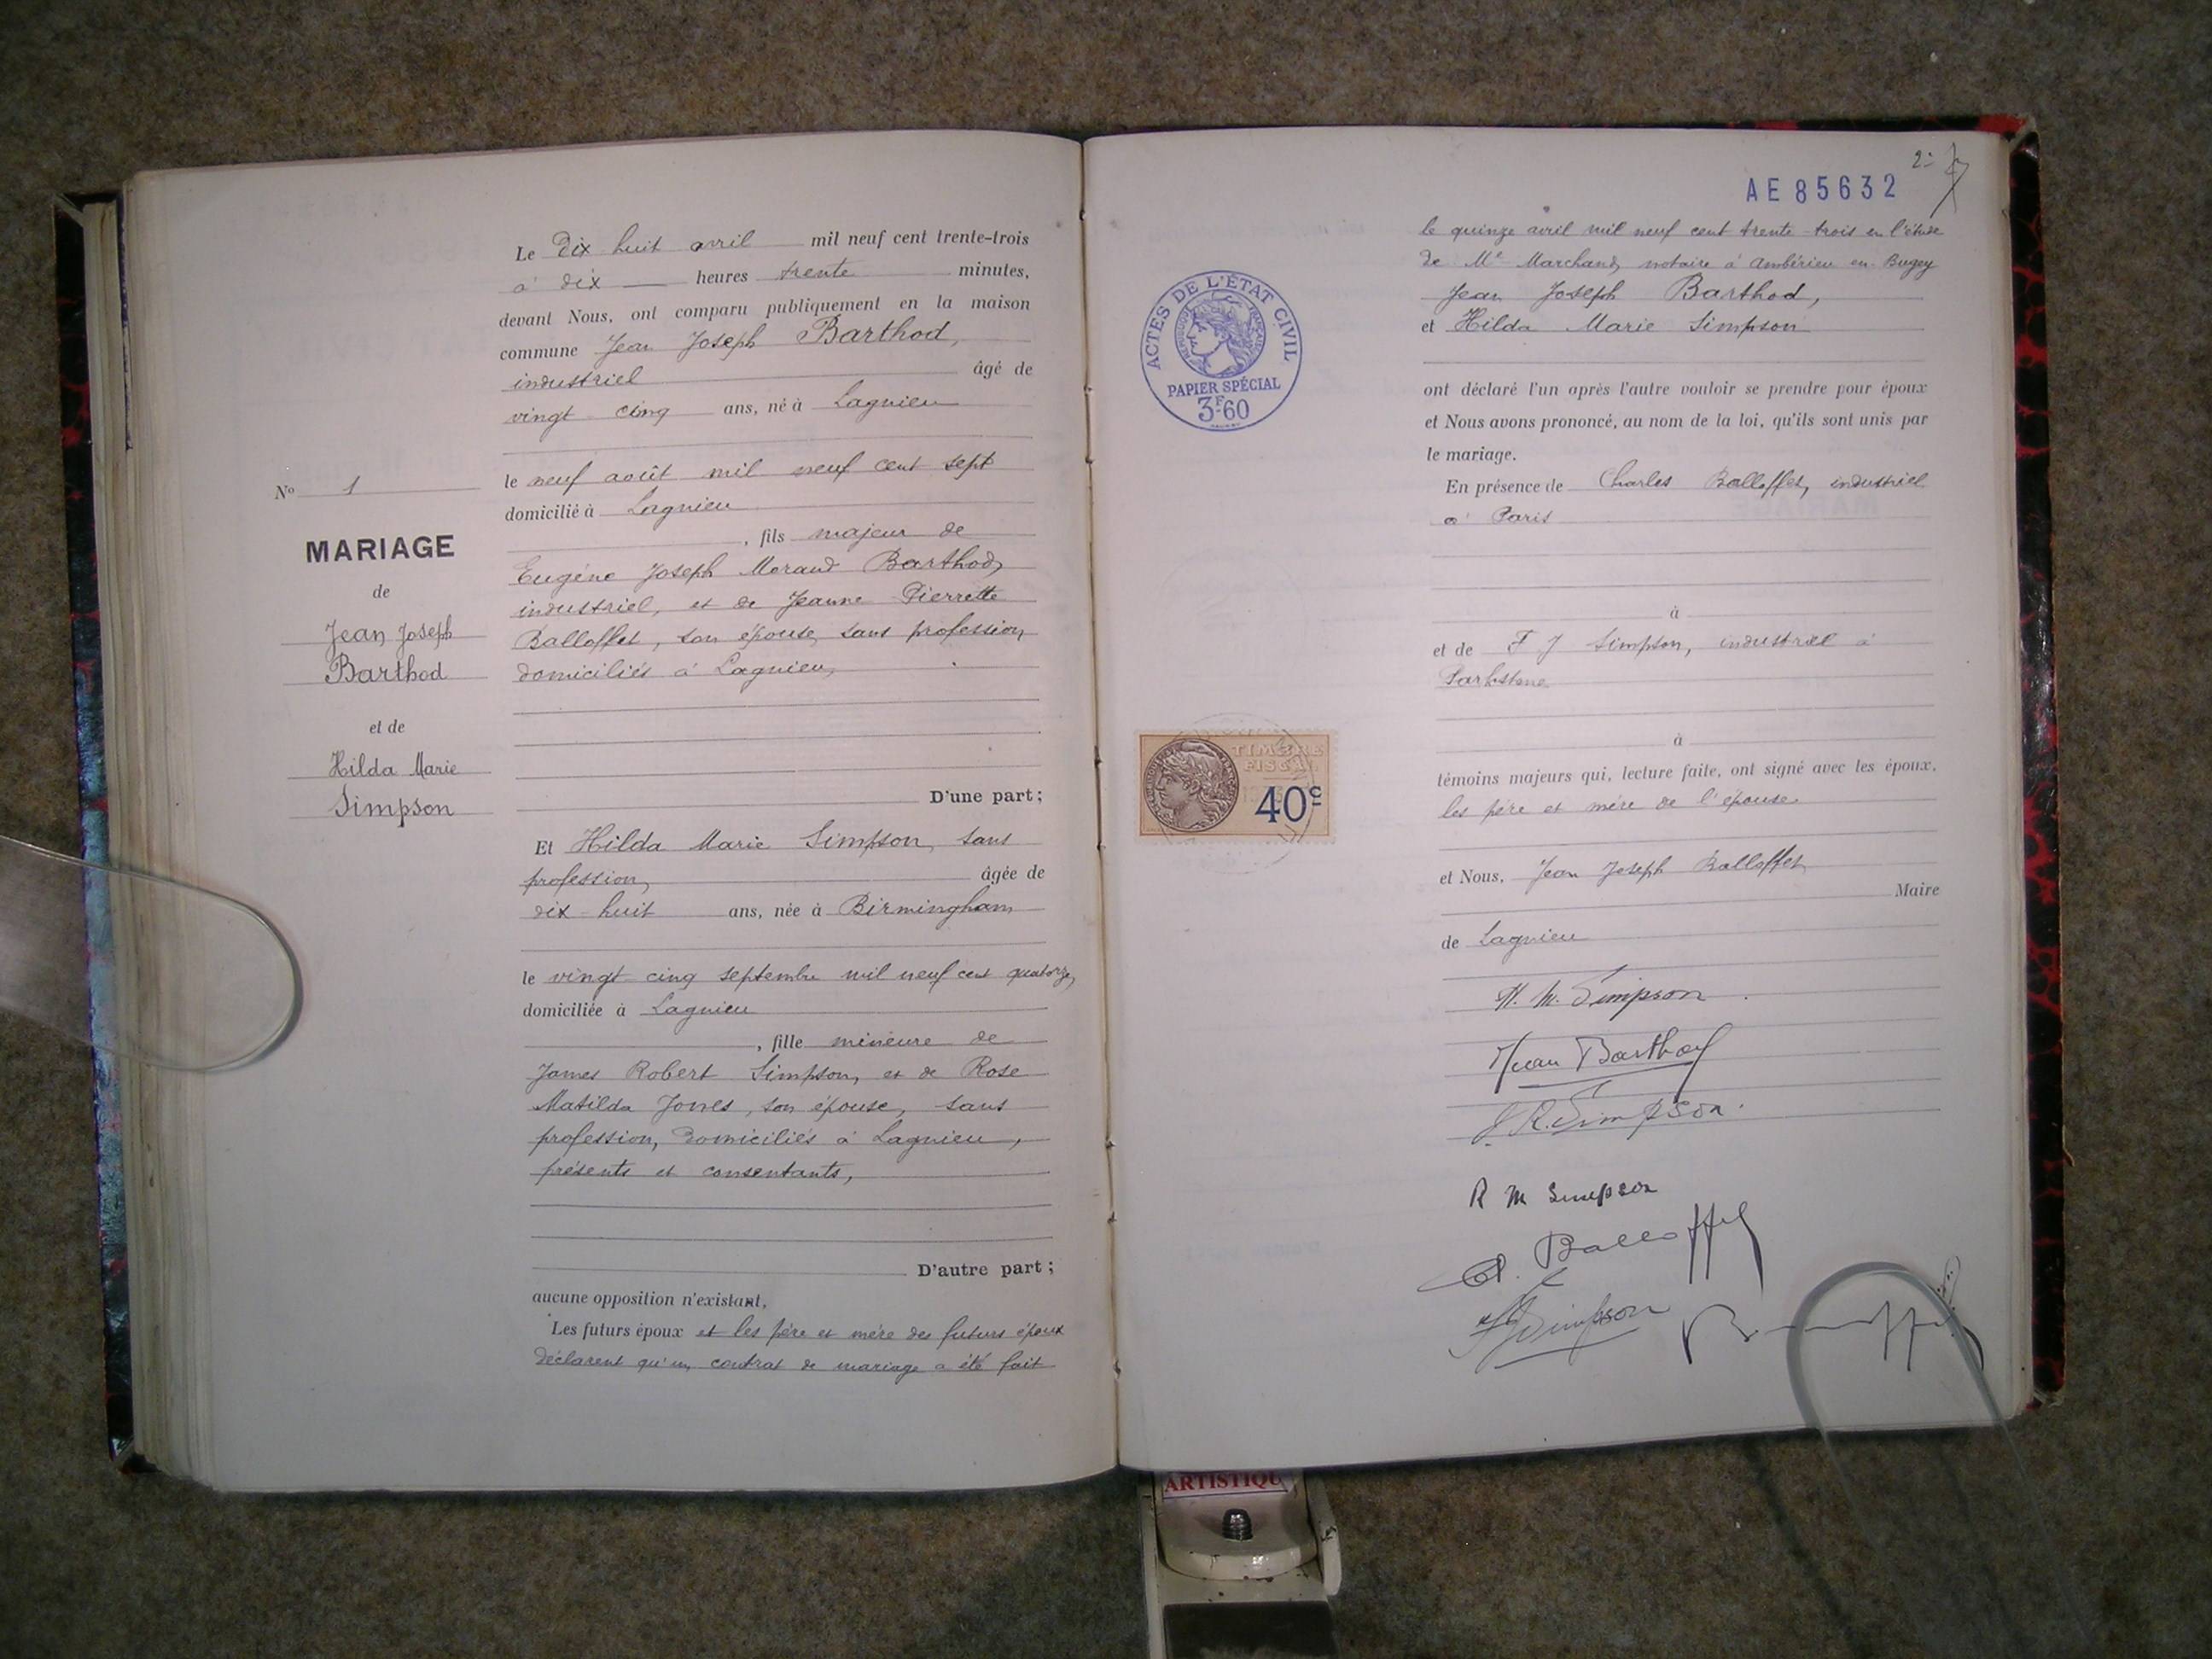 Le Dix huit avril mil neuf cent trente-trois
à dix heures trente minutes,
devant Nous, ont comparu publiquement en la maison
commune Jean Joseph Barthod,
industriel âgé de
vingt cinq ans, né à Lagnieu
le neuf août mil neuf cent sept
domicilié à Lagnieu
, fils majeur de
Eugène Joseph Morand Barthod,
industriel, et de Jeanne Pierrette
Balloffet, son épouse, sans profession,
domiciliés à Lagnieu,
D'une part;
No 1
MARIAGE
de
Jean Joseph
Barthod
et de
Hilda Marie
Simpson
Et Hilda Marie Simpson, sans
profession, âgée de
dix-huit ans, née à Birmingham
le vingt cinq septembre mil neuf cent quatorze,
domiciliée à Lagnieu
, fille mineure de
James Robert Simpson, et de Rose
Matilda Jones, son épouse, sans
profession, domiciliés à Lagnieu,
présents et consentants,
D'autre part;
aucune opposition n'existant,
Les futurs époux et les père et mère des futurs époux
déclarent qu'un contrat de mariage a été fait
2
AE 85632
le quinze avril mil neuf cent trente-trois en l'étude
de Me Marchand, notaire à Ambérieu en Bugey
Jean Joseph Barthod,
et Hilda Marie Simpson
ont déclaré l'un après l'autre vouloir se prendre pour époux
et Nous avons prononcé, au nom de la loi, qu'ils sont unis par
le mariage.
En présence de Charles Balloffet, industriel
à Paris
à
et de F J Simpson, industriel à
Parkstone
à
témoins majeurs qui, lecture faite, ont signé avec les époux,
les père et mère de l'épouse.
et Nous, Jean Joseph Balloffet
Maire
de Lagnieu
H. M. Simpson
Jean Barthod
J. R. Simpson.
R M Simpson
Balloffet
Simpson
ACTES DE L'ÉTAT CIVIL
RÉPUBLIQUE FRANÇAISE
PAPIER SPÉCIAL
3F60
TIMBRE
FISCAL
40c
ARTISTIQU